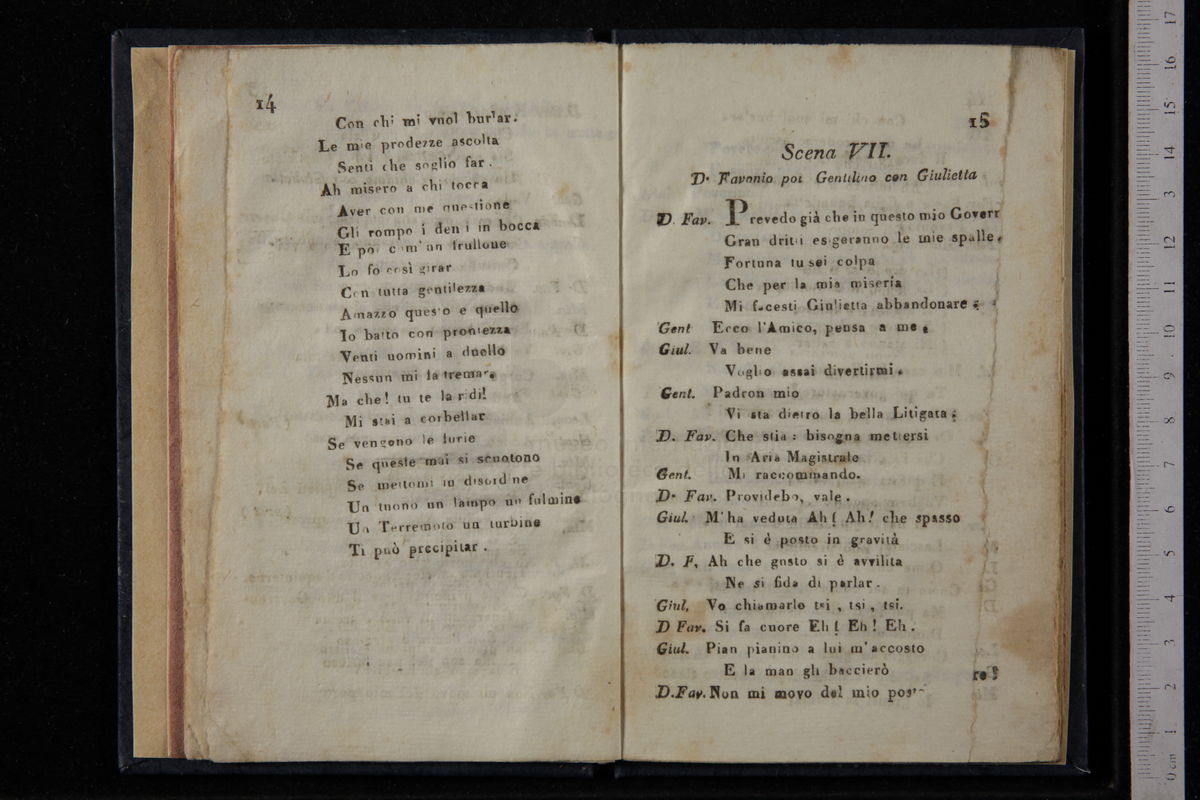 14
Con chi mi vuol burlar.
Le mie prodezze ascolta
Senti che soglio far.
Ah misero a chi tocca
Aver con me questione
Gli rompo i denti in bocca
E poi com'un frullone
Lo fo così girar
Con tutta gentilezza
Amazzo questo e quello
Io batto con prontezza
Venti uomini a duello
Nessun mi fa tremar.
Ma che! tu te la ridi!
Mi stai a corbellar
Se vengono le furie
Se queste mai si scuotono
Se mettomi in disordine
Un tuono un lampo un fulmine
Un Terremoto un turbine
Ti può precipitar.
15
Scena VII.
D. Favonio poi Gentilino con Giulietta
D. Fav. Prevedo già che in questo mio Goverr
Gran dritti esigeranno le mie spalle.
Fortuna tu sei colpa
Che per la mia miseria
Mi facesti Giulietta abbandonare
Gent Ecco l'Amico, pensa a me.
Giul. Va bene
Voglio assai divertirmi.
Gent. Padron mio
Vi sta dietro la bella Litigata;
D. Fav. Che stia: bisogna mettersi
In Aria Magistrale
Gent. Mi raccommando.
D. Fav. Providebo, vale.
Giul. M'ha veduta Ah! Ah! che spasso
E si è posto in gravità
D. F, Ah che gusto si è avvilita
Ne si fida di parlar.
Giul, Vo chiamarlo tsi, tsi, tsi.
D Fav. Si fa cuore Eh! Eh! Eh.
Giul. Pian pianino a lui m'accosto
E la man gli baccierò
D.Fav. Non mi movo del mio pos